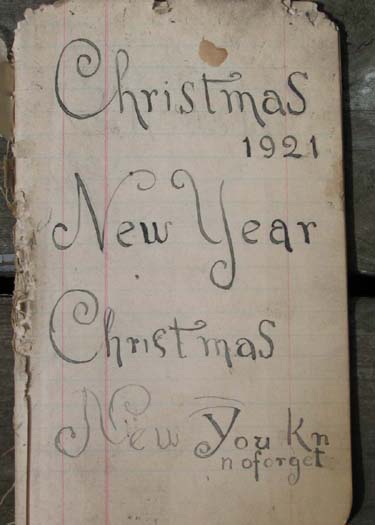 Christmas
1921
New Year
Christmas
New You Kn
noforget